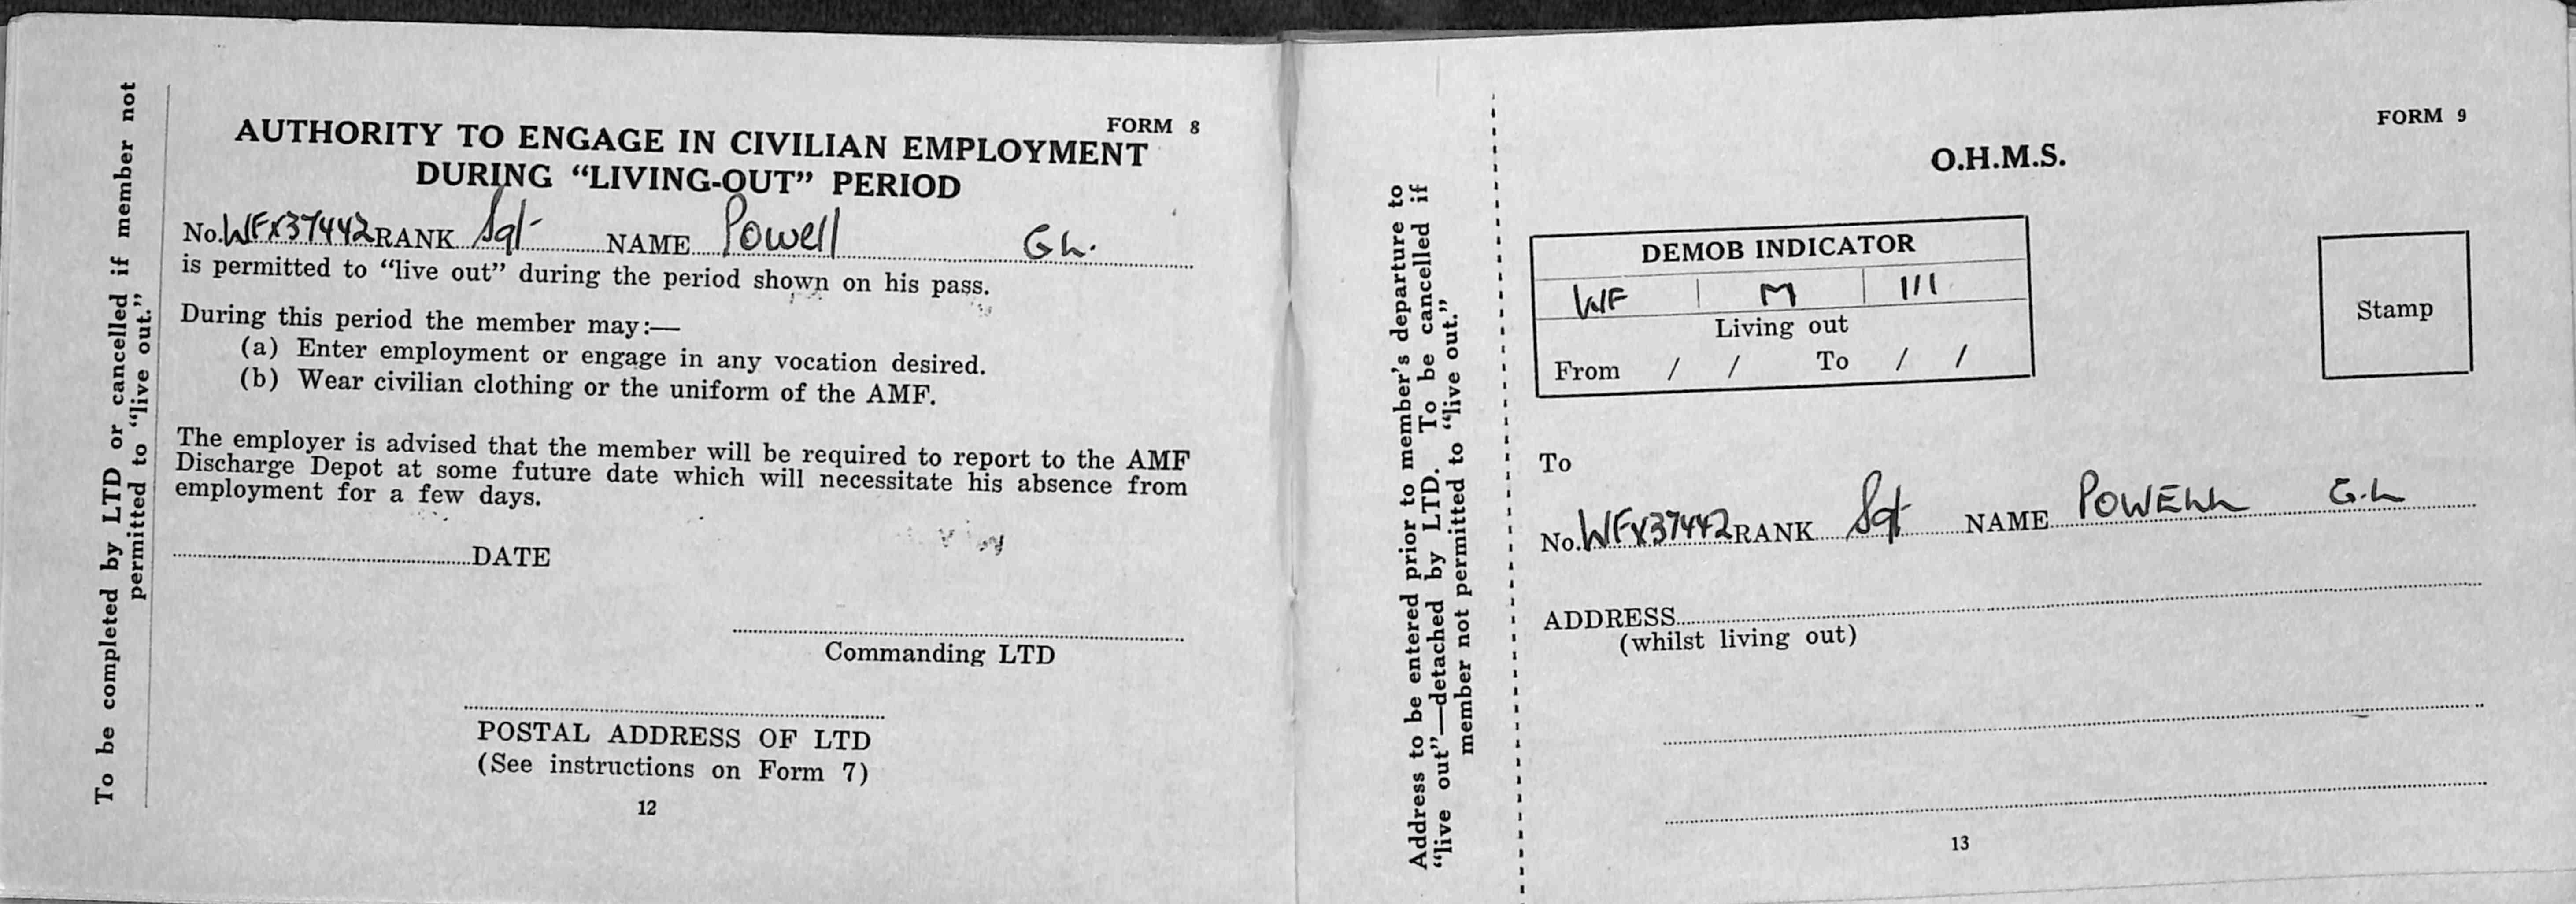 To be completed by LTD or cancelled if member not
permitted to “live out.”
FORM 8
AUTHORITY TO ENGAGE IN CIVILIAN EMPLOYMENT
DURING “LIVING-OUT” PERIOD
No. WFX37442 RANK Sgt NAME Powell G L.
is permitted to “live out” during the period shown on his pass.
During this period the member may:—
(a) Enter employment or engage in any vocation desired.
(b) Wear civilian clothing or the uniform of the AMF.
The employer is advised that the member will be required to report to the AMF
Discharge Depot at some future date which will necessitate his absence from
employment for a few days.
DATE
Commanding LTD
POSTAL ADDRESS OF LTD
(See instructions on Form 7)
12
Address to be entered prior to member's departure to
“live out”—detached by LTD. To be cancelled if
member not permitted to “live out.”
FORM 9
O.H.M.S.
DEMOB INDICATOR
WF M 111
Living out
From / / To / /
Stamp
To
No. WFX37442 RANK Sgt NAME POWELL G.L
ADDRESS
(whilst living out)
13